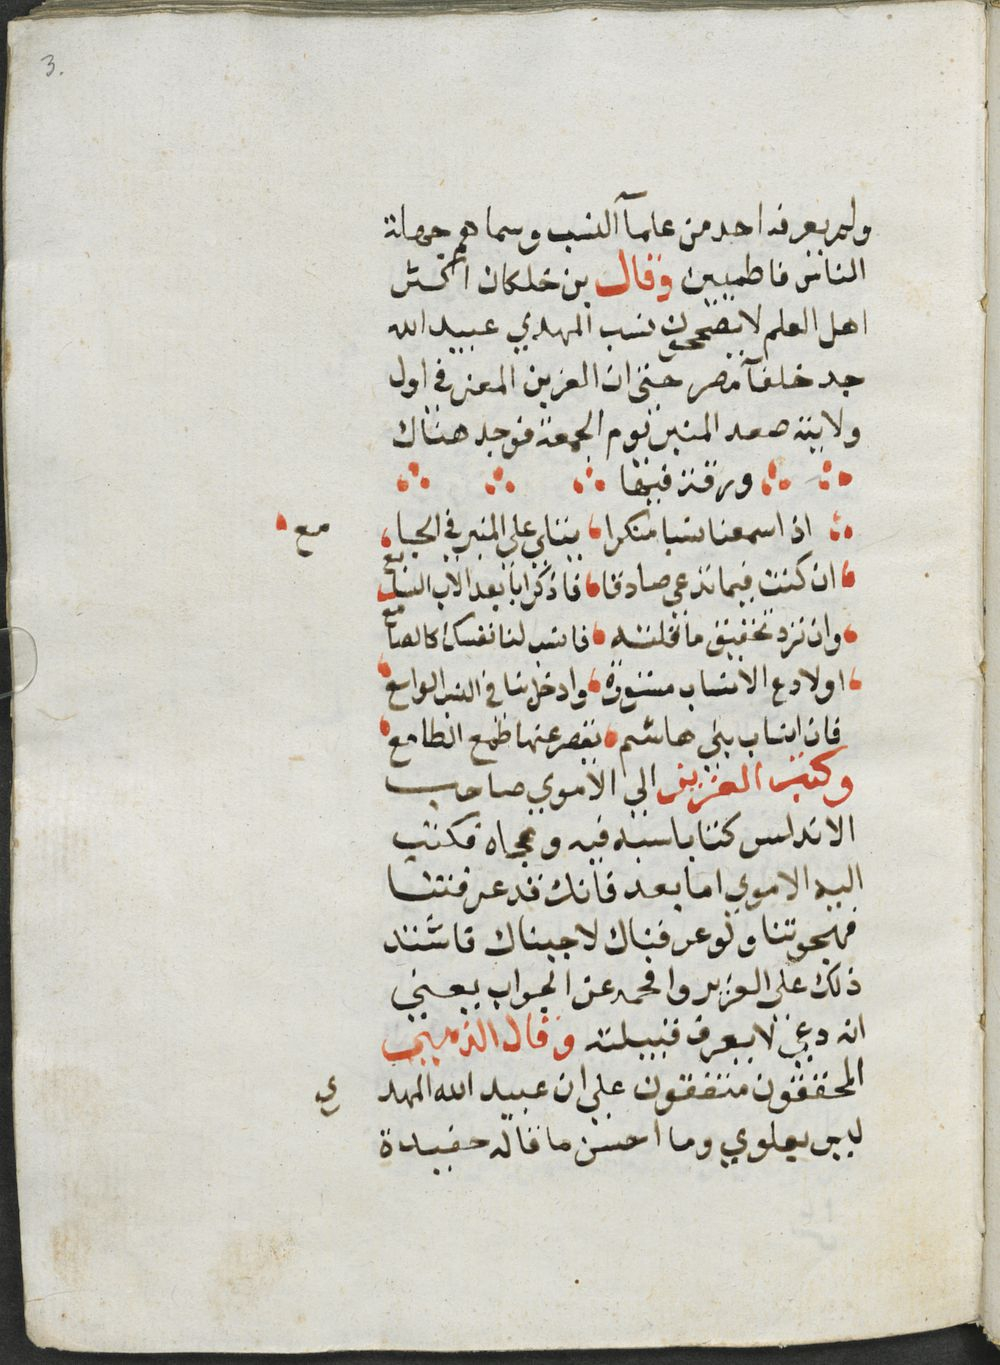 3.
ولم يعرفه احد من علمآ النسب وسماهم جهلة
الناس فاطميين وقال بن خلكان اكثر
اهل العلم لا يصححون نسب المهدي عبيد الله
جد خلفآ مصر حتى ان العزيز بن المعز في اول
ولايته صعد المنبر يوم الجمعة فوجد هناك
ورقة فيها
اذا سمعنا نسبا منكرا يتلى على المنبر في الجامع
ان كنت فيما تدعي صادقا فاذكر ابا بعد الاب السابع
وان ترد تحقيق ما قلته فانسب لنا نفسك كالطامع
اولا دع الانساب مستورة وادخل بنا في النسب الواسع
فان انساب بني هاشم يقصر عنها طمع الطامع
وكتب العزيز الى الاموي صاحب
الاندلس كتابا سبه فيه وهجاه فكتب
اليه الاموي اما بعد فانك قد عرفتنا
فهجوتنا ولو عرفناك لاجبناك فاشتد
ذلك على العزيز وافحمه عن الجواب يعني
انه دعي لا يعرف قبيلته وقال الذهبي
المحققون متفقون على ان عبيد الله المهدي
ليس بعلوي وما احسن ما قاله حفيده